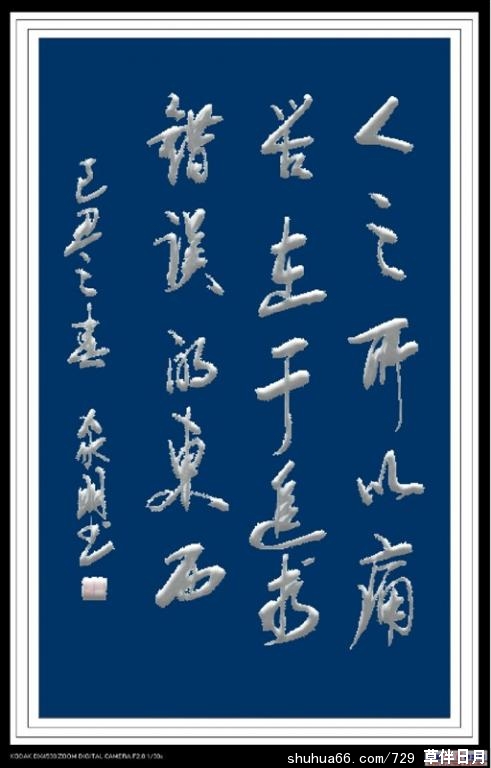 人之所以痛
苦在于追求
錯误的東西
己丑之春 家明书
KODAK DX4530 ZOOM DIGITAL CAMERA F2.8 1/30s
shuhua66.com/729 草伴日月